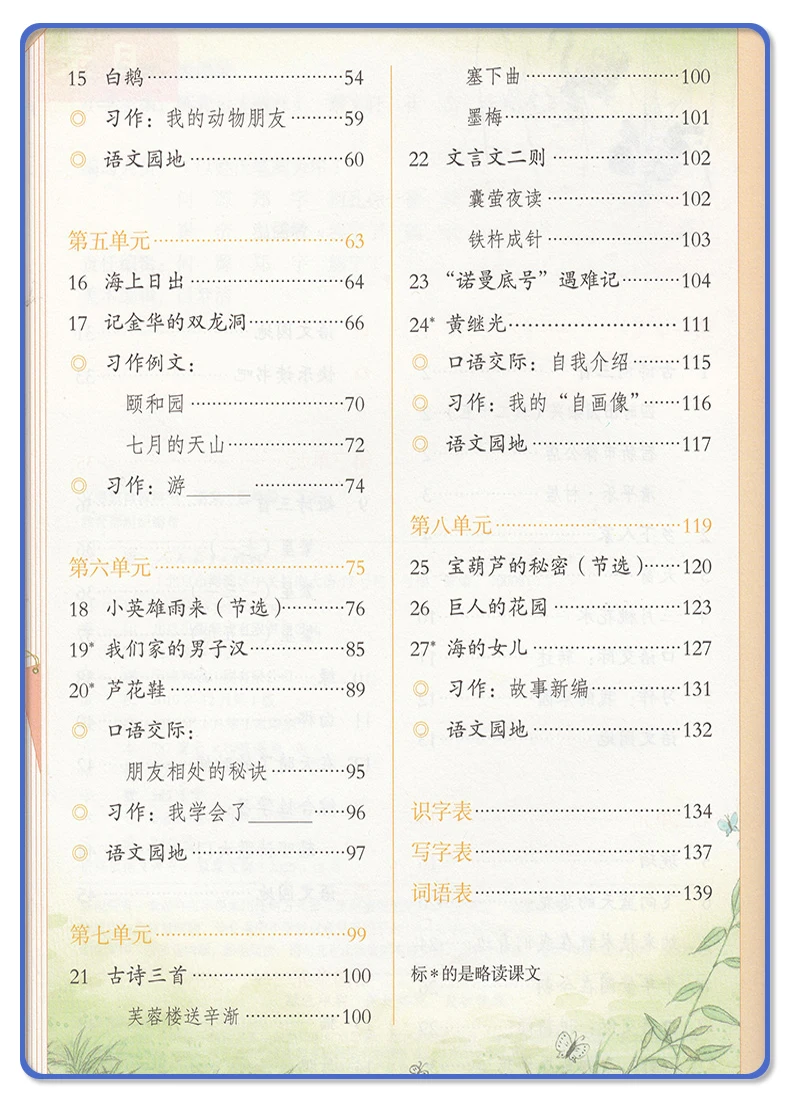 15 白鹅……54
◎ 习作：我的动物朋友……59
◎ 语文园地……60
第五单元……63
16 海上日出……64
17 记金华的双龙洞……66
◎ 习作例文：
颐和园……70
七月的天山……72
◎ 习作：游______……74
第六单元……75
18 小英雄雨来（节选）……76
19* 我们家的男子汉……85
20* 芦花鞋……89
◎ 口语交际：
朋友相处的秘诀……95
◎ 习作：我学会了______……96
◎ 语文园地……97
第七单元……99
21 古诗三首……100
芙蓉楼送辛渐……100
塞下曲……100
墨梅……101
22 文言文二则……102
囊萤夜读……102
铁杵成针……103
23 “诺曼底号”遇难记……104
24* 黄继光……111
◎ 口语交际：自我介绍……115
◎ 习作：我的“自画像”……116
◎ 语文园地……117
第八单元……119
25 宝葫芦的秘密（节选）……120
26 巨人的花园……123
27* 海的女儿……127
◎ 习作：故事新编……131
◎ 语文园地……132
识字表……134
写字表……137
词语表……139
标*的是略读课文